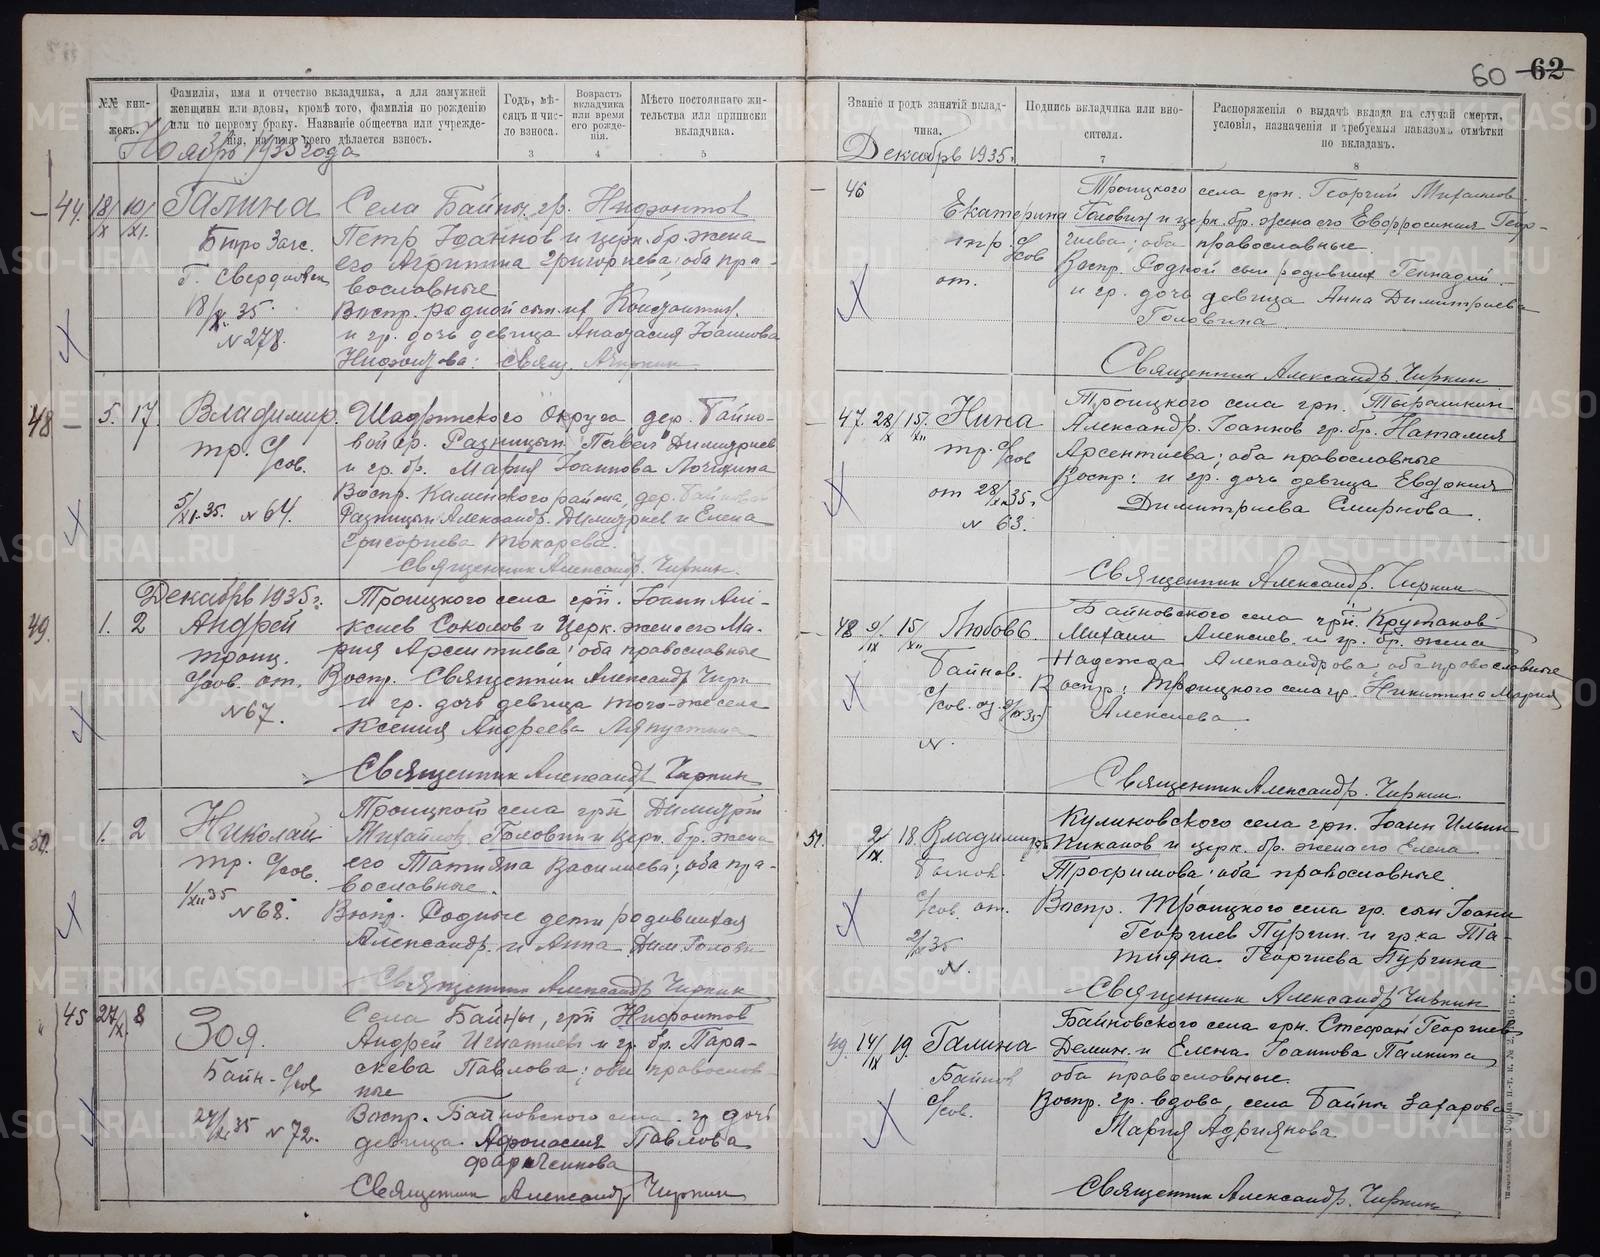 60 62
№№ книжекъ.
Фамилія, имя и отчество вкладчика, а для замужней
женщины или вдовы, кромѣ того, фамилія по рожденію
или по первому браку. Названіе общества или учрежде-
нія, на имя коего дѣлается взносъ.
Годъ, мѣ-
сяцъ и чис-
ло взноса.
3
Возрастъ
вкладчика
или время
его рожде-
нія.
4
Мѣсто постояннаго жи-
тельства или приписки
вкладчика.
5
Ноябрь 1935 года
44. 18/IX 10/XI. Галина
Бюро Загс.
г. Свердловск
18/IX 35.
N 278.
Села Байны гр. Нифонтов
Петр Иоаннов и церк. бр. жена
его Агрипина Григориева; оба пра-
вославные
Воспр. родной сын их Константин.
и гр. дочь девица Анастасия Иоаннова
Нифонтова: свящ. Чиркин
48 5. 17. Владимир.
тр. с/сов.
5/XI.35. N 64.
Шадринского округа дер. Байно-
вой гр. Разницын Павел Димитриев
и гр. бр. Мария Иоаннова
Воспр. Каменского района, дер. Байновой
Разницын Александр. Димитриев и Елена
Григориева Токарева.
Священник Александр. Чиркин.
Декабрь 1935 г.
49. 1. 2 Андрей
троиц.
с/сов. от.
N 67.
Троицкого села грн. Иоанн Але-
ксиев Соколов и церк. жена его Ма-
рия Арсентиева; оба православные
Воспр. Священник Александр Чирк
и гр. дочь девица того-же села
Ксения Андреева Ляпустина
Священник Александр Чиркин
50. 1. 2 Николай
тр. с/сов.
1/XII 35
N 68.
Троицкого села грн Димитрий
Михайлов Головин и церк. бр. жена
его Татияна Василиева; оба пра-
вославные.
Воспр. Родные дети родившихся
Александр. и Анна Дим. Голови
Священник Александр Чиркин
45 27/X. 8 Зоя.
Байн. с/сов
27/X 35 N 72.
Села Байны, грн Нифонтов
Андрей Игнатиев и гр. бр. Пара-
скева Павлова; оба православ-
ные
Воспр. Байновского села гр дочь
девица Афонасия Павлова
Священник Александр Чиркин
Званіе и родъ занятій вклад-
чика.
Подпись вкладчика или вно-
сителя.
7
Распоряженія о выдачѣ вклада на случай смерти,
условія, назначенія и требуемыя наказомъ отмѣтки
по вкладамъ.
8
Декабрь 1935 г.
46
Екатерина
тр. с/сов
от.
Троицкого села грн. Георгий Михаилов.
Головин и церк. бр. жена его Евфросиния Геор-
гиева; оба православные
Воспр. Родной сын родивших Геннадий
и гр. дочь девица Анна Димитриева
Головина
Священник Александр. Чиркин
47. 28/X 15/XII Нина
тр. с/сов
от 28/X 35 г.
N 63.
Троицкого села грн. Тырашкин
Александр. Иоаннов гр. бр. Наталия
Арсентиева; оба православные
Воспр: и гр. дочь девица Евдокия
Димитриева Смирнова.
Священник Александр. Чиркин
48 9/IX 15/XII Любовь.
Байнов.
с/сов. от 9/IX 35
N.
Байновского села грн. Крутаков
Михаил Алексиев и гр. бр. жена
Надежда Александрова оба православные
Воспр: Троицкого села гр. Никитина Мария
Алексиева
Священник Александр. Чиркин
51. 2/IX. 18. Владимир
Байнов
с/сов. от.
2/IX 35
N.
Куликовского села грн. Иоанн Ильин
Никанов и церк. бр. жена его Елена
Трофимова; оба православные
Воспр. Троицкого села гр. сын Иоанн
Георгиев Пургин. и гр-ка Та-
тияна Георгиева Пургина
Священник Александр Чиркин
49. 14/IX 19. Галина
Байнов
с/сов.
Байновского села грн. Стефан Георгиев
Демин. и Елена Иоаннова Палкина
оба православные.
Воспр. гр. вдова, села Байны Захарова
Мария Адриянова
Священник Александр. Чиркин
METRIKI.GASO-URAL.RU